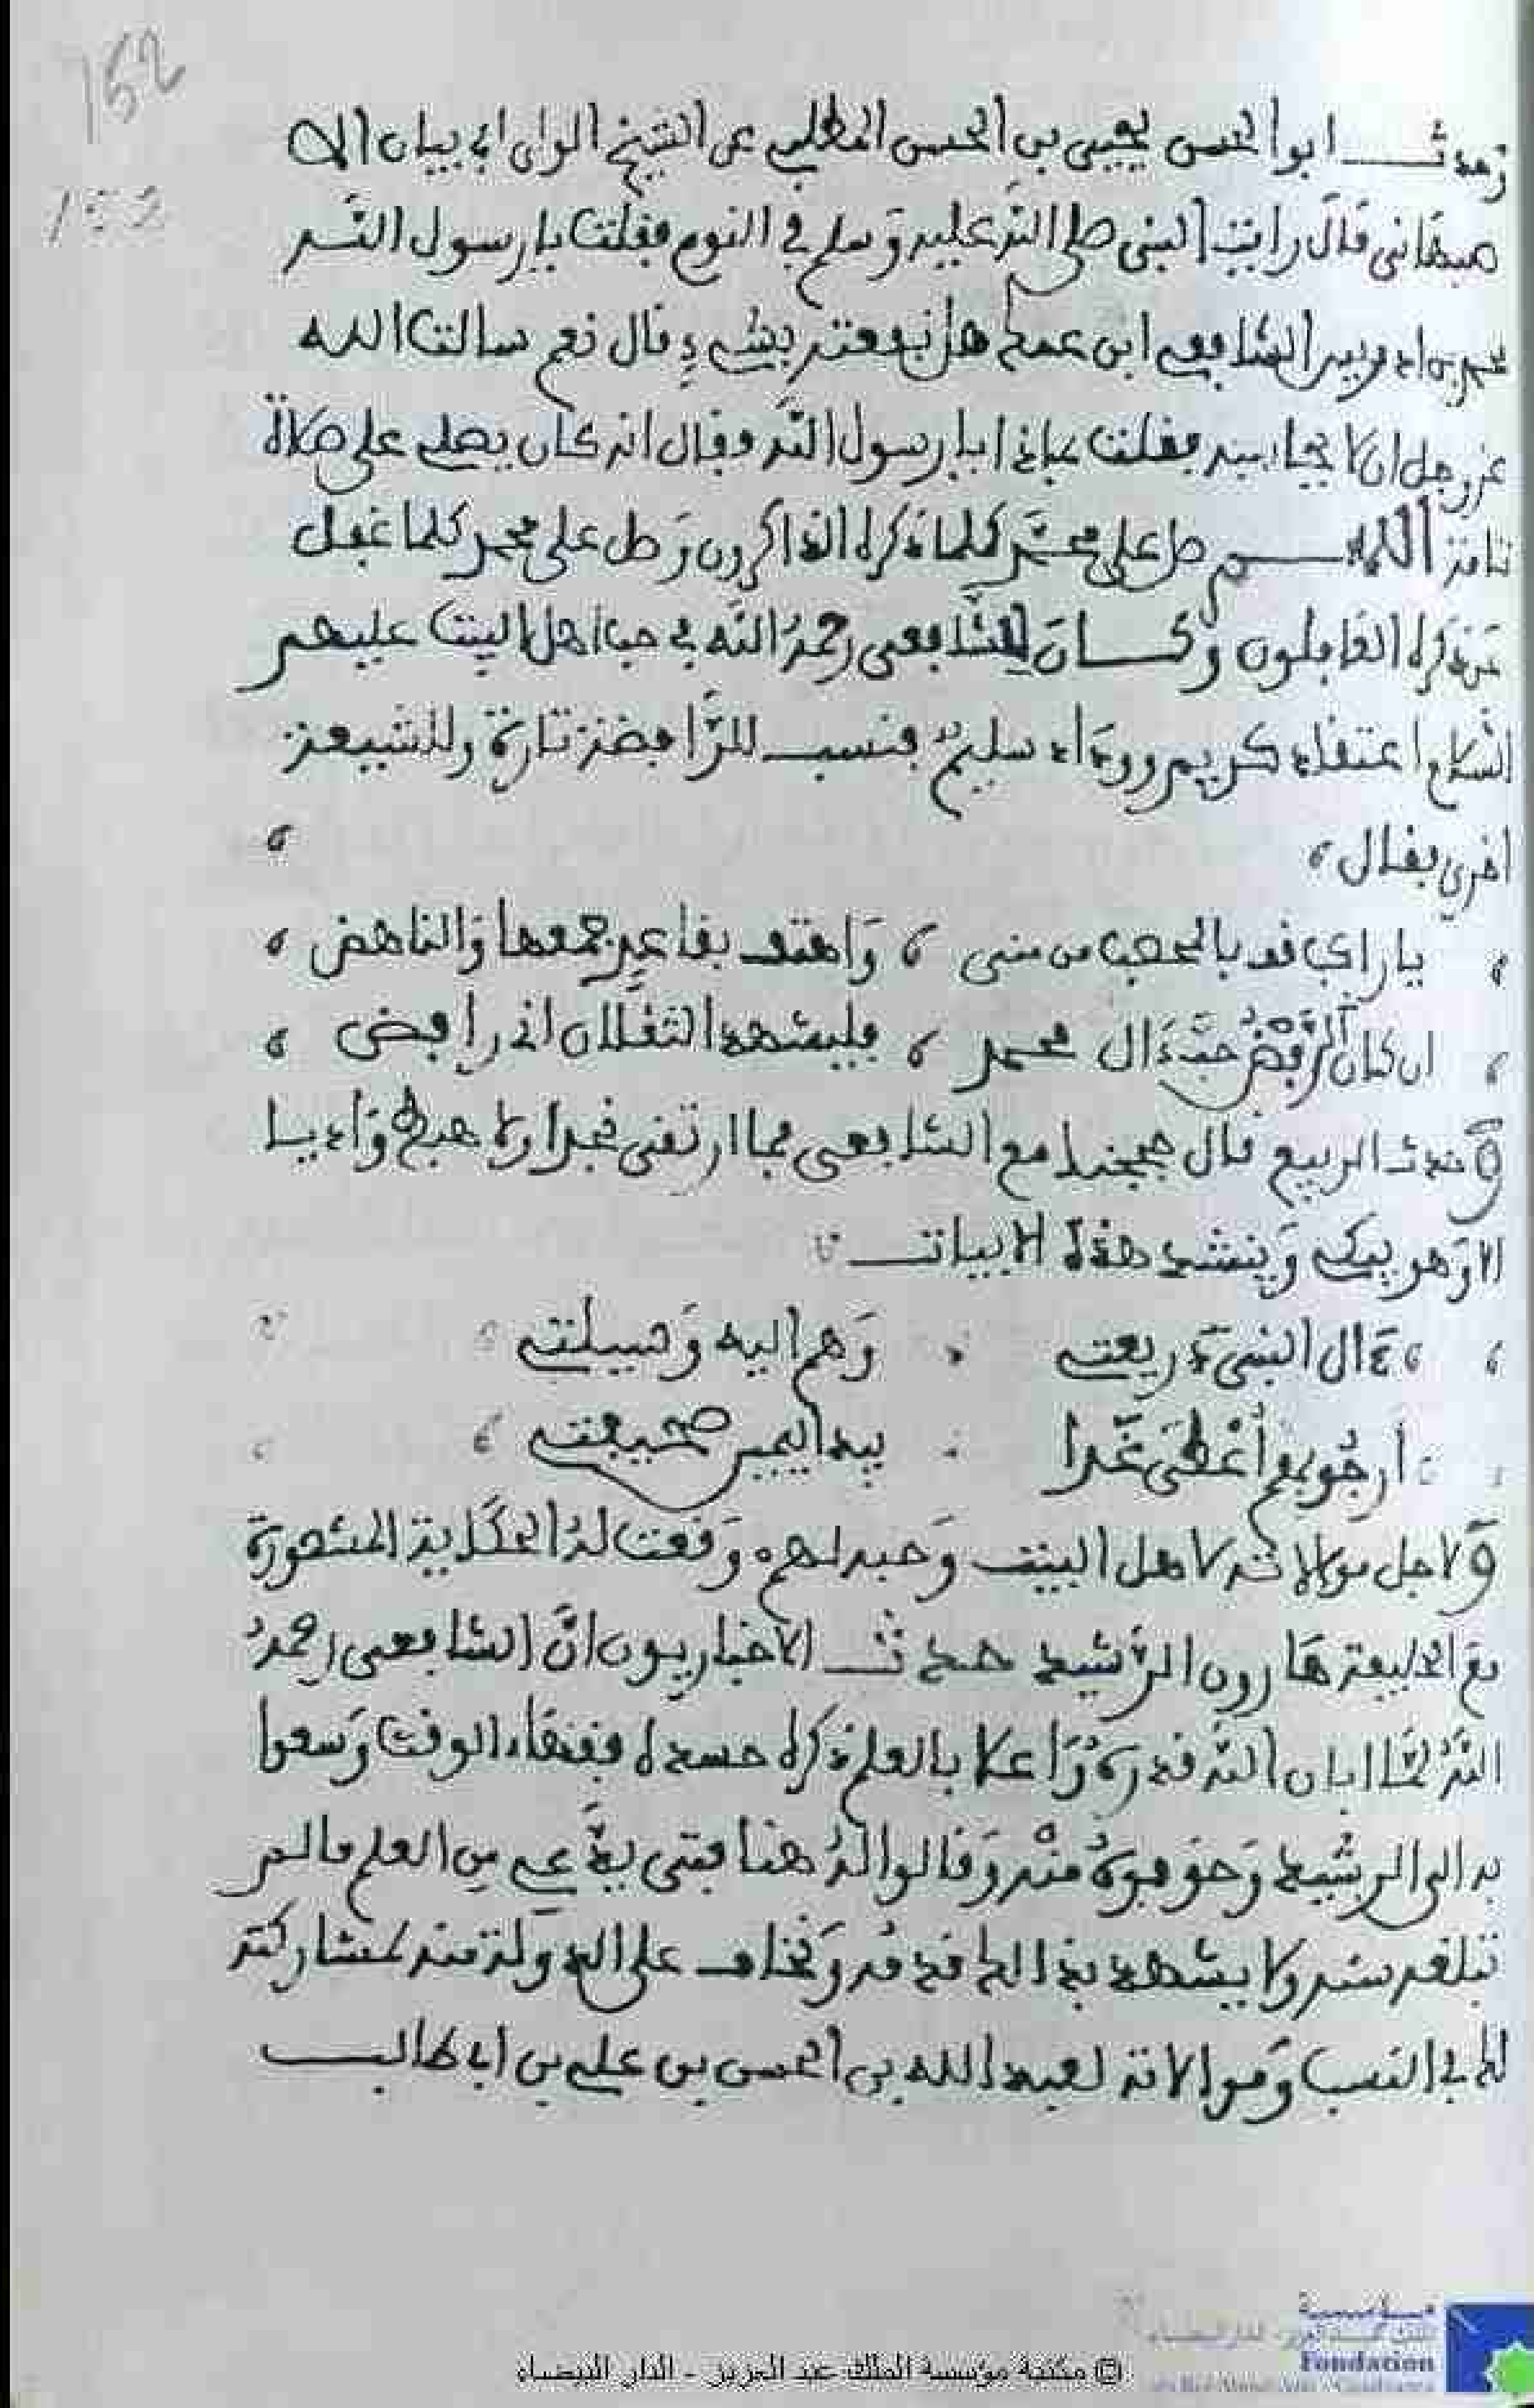 152
152
وحدث ابو الحسن يحيى بن الحسن المطلبي عن الشيخ الولي ابي بيان الا
صبهاني قال رايت النبي صلى الله عليه وسلم في النوم فقلت يا رسول الله
محمد بن ادريس الشافعي ابن عمك هل نفعته بشيء قال نعم سالت الله
عز وجل ان لا يحاسبه فقلت بماذا يا رسول الله فقال انه كان يصلي علي صلاة
تامة اللهم صل على محمد كلما ذكره الذاكرون وصل على محمد كلما غفل
عن ذكره الغافلون وكان للشافعي رحمه الله في حب اهل البيت عليهم
السلام اعتقاد كريم ووداد سليم فنسب للرافضة تارة وللشيعة
اخرى فقال ،
يا راكبا قف بالمحصب من منى ، واهتف بقاعد جمعها والناهض ،
ان كان الرفض حب ءال محمد ، فليشهد الثقلان اني رافضي ،
وحدث الربيع قال حججنا مع الشافعي فما ارتقى نجدا ولا هبط واديا
الا وهو يبكي وينشد هذه الابيات
ءال النبي ذريعتي وهم اليه وسيلتي
ارجو بهم اعطى غدا بيد اليمين صحيفتي ،
ولاجل موالاته لاهل البيت وحبه لهم وقعت له الحكاية المشهورة
مع الخليفة هارون الرشيد حدث الاخباريون ان الشافعي رحمه
الله لما ابان الله قدره واعلا بالعلم ذكره حسده فقهاء الوقت وسعوا
به الى الرشيد وخوفوه منه وقالوا له هنا فتى يدعي من العلم ما لم
تبلغه سنه ولا يشهد بذالك قدمه ونخاف على الدولة منه لمشاركته
لك في النسب وموالاته لعبد الله بن الحسن بن علي بن ابي طالب
مؤسسة
Fondation
© مكتبة مؤسسة الملك عبد العزيز - الدار البيضاء